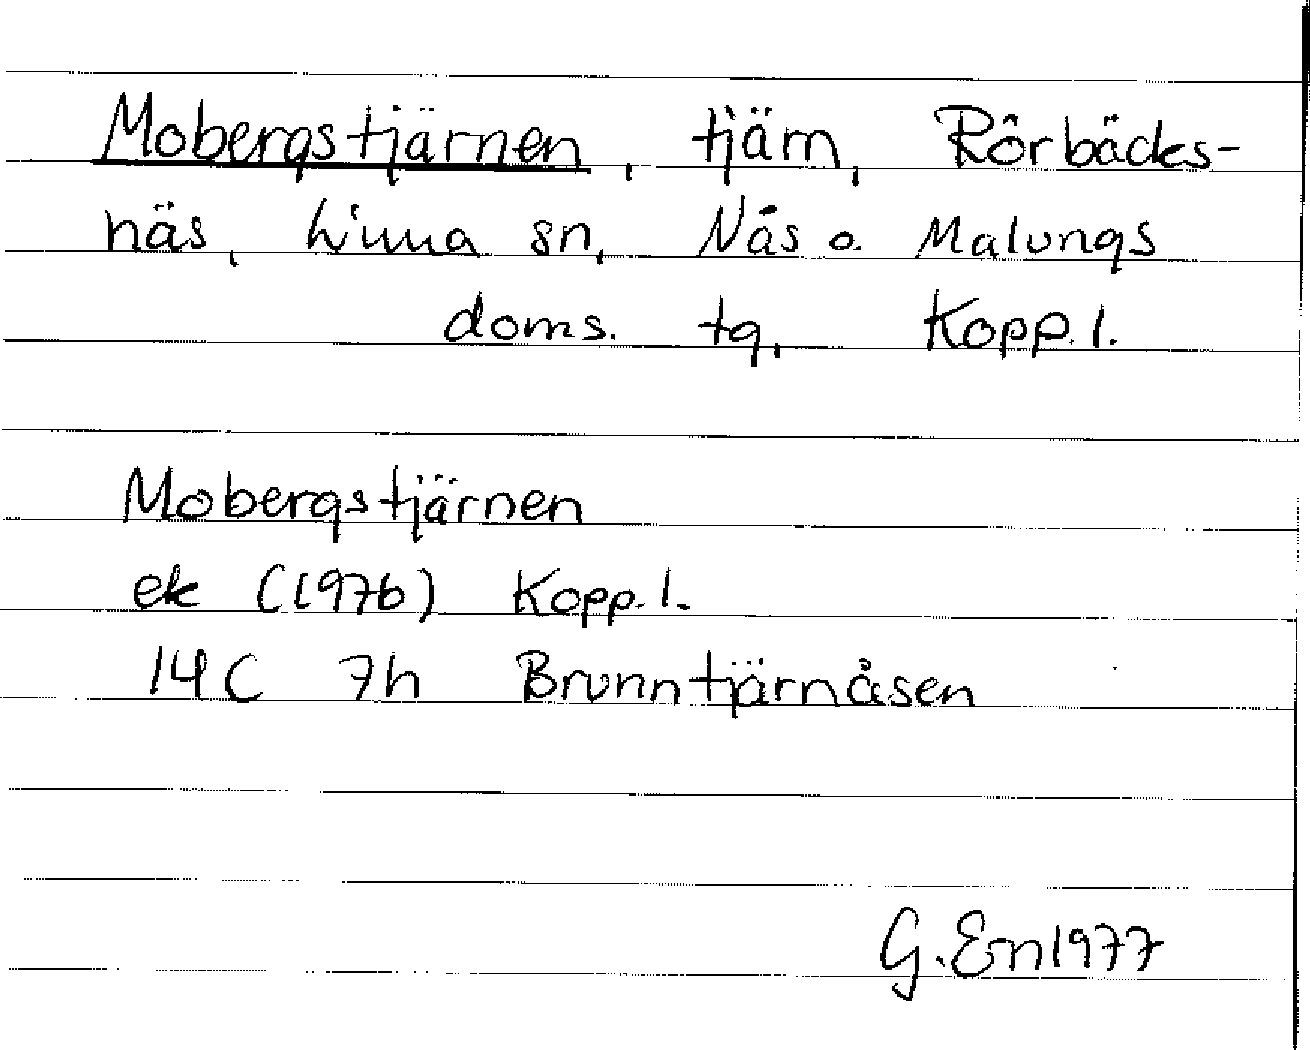 Mobergstjärnen, tjärn, Rörbäcks-
näs, Lima sn, Nås o. Malungs
doms. tg, Kopp. l.
Mobergstjärnen
ek (1976) Kopp. l.
14C 7h Brunntjärnåsen
G. En 1977